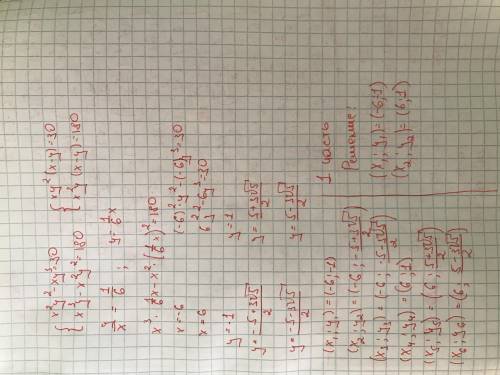 { x²y² - xy³ = 30 { xy²(x-y) = 30
{ x³y - x²y² = 180 { x²y(x-y) = 180
y/x = 1/6 ; y = 1/6 x
x³ · 1/6 x - x² · (1/6 x)² = 180
x = -6 (-6)² · y² - (-6)y³ = 30
x = 6 6²y² - 6y³ = 30
y = -1 y = 1
y = (-5+3√5)/2 y = (5+3√5)/2
y = (-5-3√5)/2 y = (5-3√5)/2
(x₁; y₁) = (-6; -1)
(x₂; y₂) = (-6; (-5+3√5)/2)
(x₃; y₃) = (-6; (-5-3√5)/2)
(x₄; y₄) = (6; 1)
(x₅; y₅) = (6; (5+3√5)/2)
(x₆; y₆) = (6, (5-3√5)/2)
1 часть
Решение:
(x₁; y₁) = (-6; -1)
(x₂; y₂) = (6; 1)